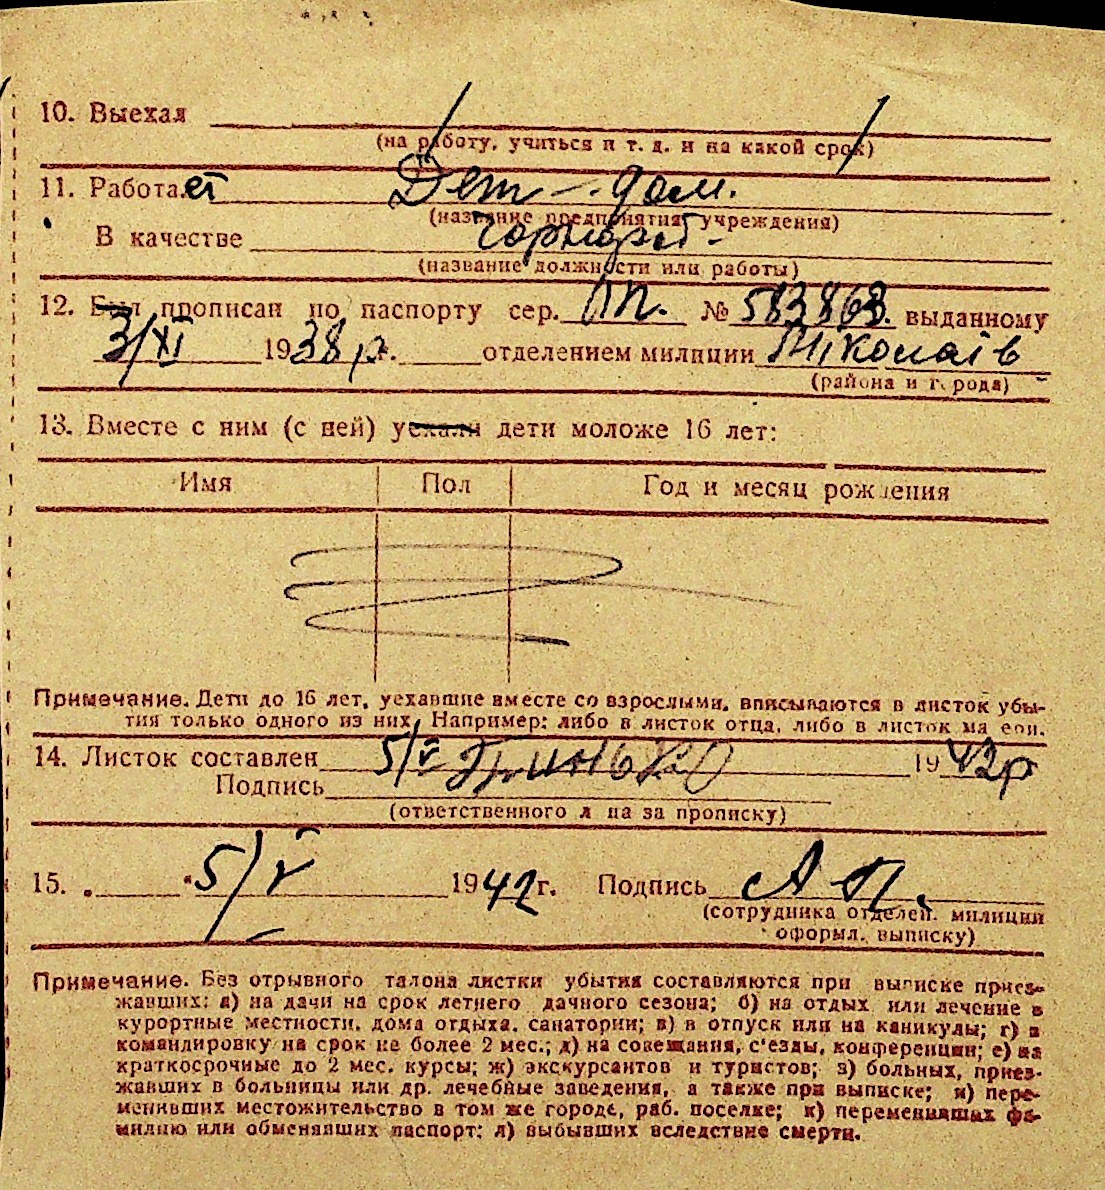 10. Выехал
(на работу, учиться и т. д. и на какой срок)
11. Работает Дет-дом.
(название предприятия, учреждения)
В качестве
(название должности или работы)
12. Был прописан по паспорту сер. № 583868. выданному
3/XI 1938 р. отделением милиции Міколаїв
(района и города)
13. Вместе с ним (с ней) уехали дети моложе 16 лет:
Имя Пол Год и месяц рождения
Примечание. Дети до 16 лет, уехавшие вместе со взрослыми, вписываются в листок убы-
тия только одного из них. Например: либо в листок отца, либо в листок матери.
14. Листок составлен 5/V 1942р
Подпись
(ответственного лица за прописку)
15. „ “ 5/V 1942 г. Подпись А П.
(сотрудника отделен. милиции
оформл. выписку)
Примечание. Без отрывного талона листки убытия составляются при выписке приез-
жавших: а) на дачи на срок летнего дачного сезона; б) на отдых или лечение в
курортные местности, дома отдыха, санатории; в) в отпуск или на каникулы; г) в
командировку на срок не более 2 мес.; д) на совещания, с'езды, конференции; е) на
краткосрочные до 2 мес. курсы; ж) экскурсантов и туристов; з) больных, приез-
жавших в больницы или др. лечебные заведения, а также при выписке; и) пере-
менивших местожительство в том же городе, раб. поселке; к) переменивших фа-
милию или обменявших паспорт; л) выбывших вследствие смерти.